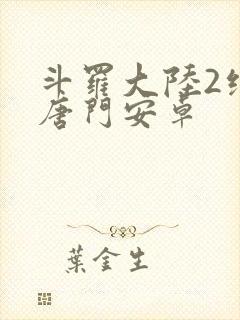 斗羅大陸2
唐門安卓
葉金生